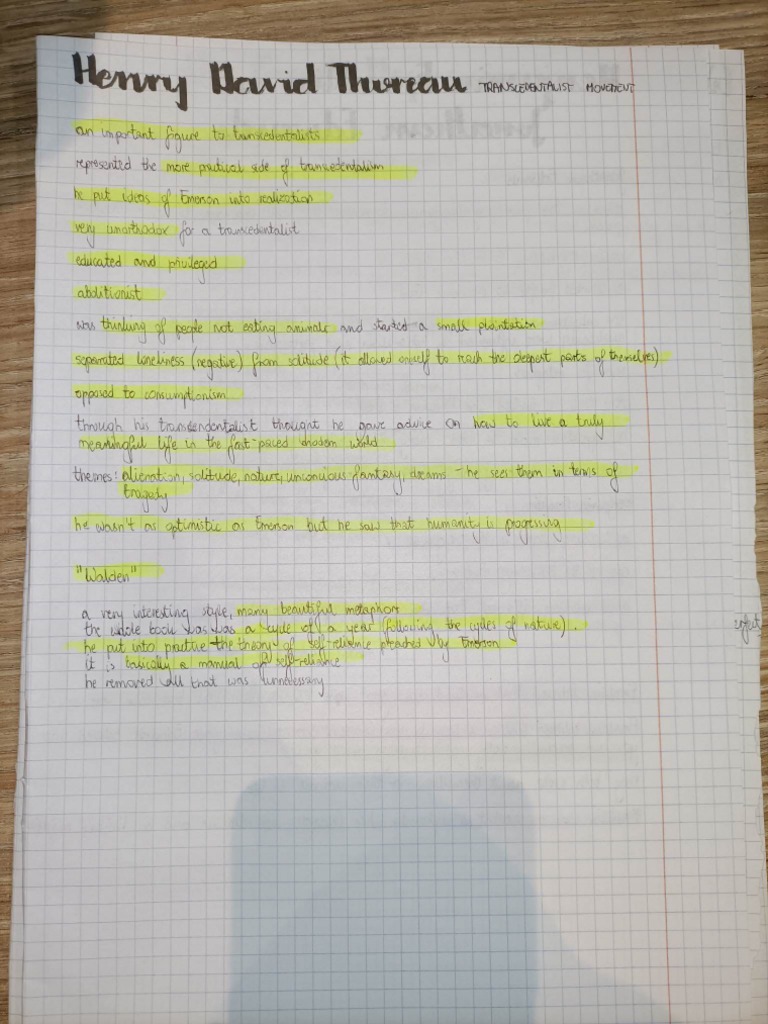 Henry David Thoreau TRANSCEDENTALIST MOVEMENT
an important figure to transcedentalists
represented the more practical side of transcedentalism
he put ideas of Emerson into realization
very unorthodox for a transcedentalist
educated and privileged
abolitionist
was thinking of people not eating animals and started a small plantation
separated loneliness (negative) from solitude (it allowed oneself to reach the deepest parts of themselves)
opposed to consumptionism
through his transcendentalist thought he gave advice on how to live a truly
meaningful life in the fast-paced modern world
themes: alienation, solitude, nature, unconcious fantasy, dreams - he sees them in terms of
tragedy
he wasn't as optimistic as Emerson but he saw that humanity is progressing
"Walden"
a very interesting style, many beautiful metaphors
the whole book was was a cycle of a year (following the cycles of nature).
he put into practice the theory of self-reliance preached by Emerson
it is basically a manual of self-reliance
he removed all that was unnecessary